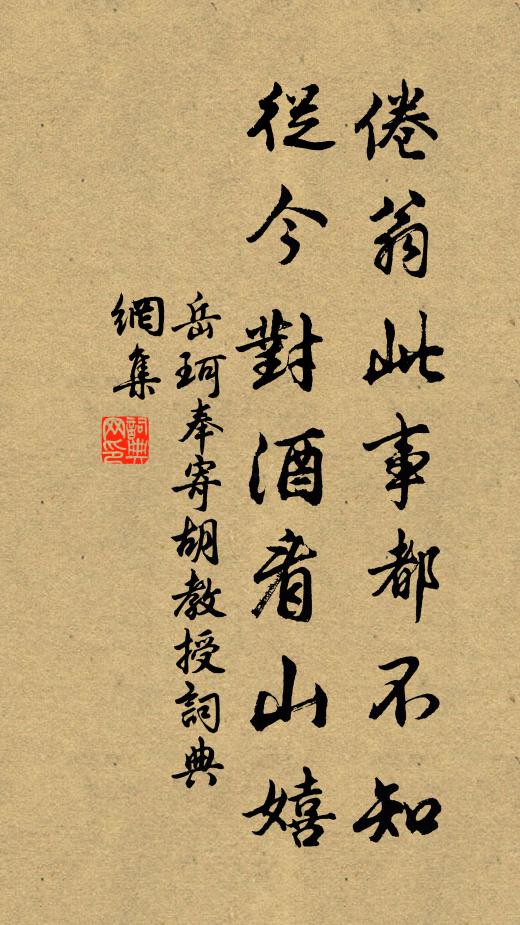 倦翁此事都不知
從今對酒看山嬉
岳珂奉寄胡教授詞典
網集
詞典網印